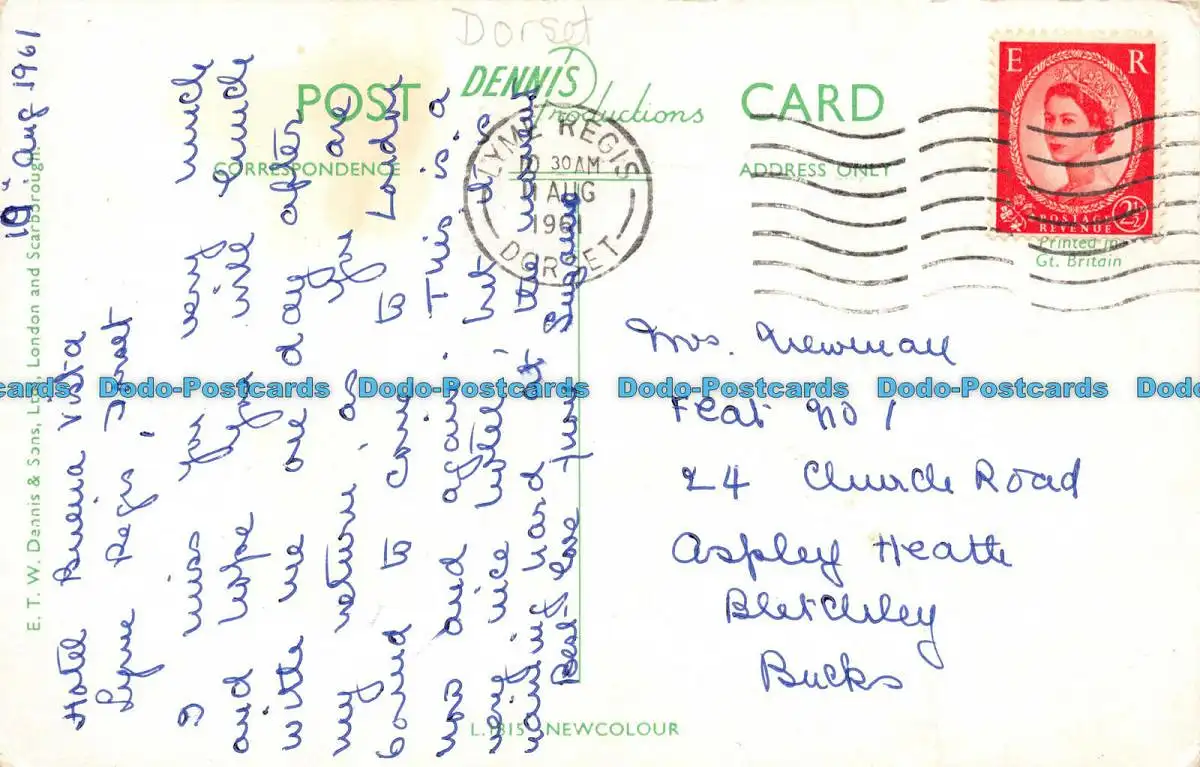 Dorset
POST CARD
DENNIS
Productions
CORRESPONDENCE
ADDRESS ONLY
LYME REGIS
10 30 AM
1 AUG
1961
DORSET
E R
POSTAGE
REVENUE
2½
Printed in
Gt. Britain
10th Aug 1961
Hotel Buena Vista
Lyme Regis, Dorset
I miss you very much
and hope you will lunch
with me one day after
my return as you are
bound to come to London
now and again. This is a
very nice hotel, but it's
the
waiting hard at
Best love from Suzanne
Mrs. Newman
Flat No 1
24 Church Road
Aspley Heath
Bletchley
Bucks
E. T. W. Dennis & Sons, Ltd., London and Scarborough.
L.1815 NEWCOLOUR
Dodo-Postcards Dodo-Postcards Dodo-Postcards Dodo-Postcards